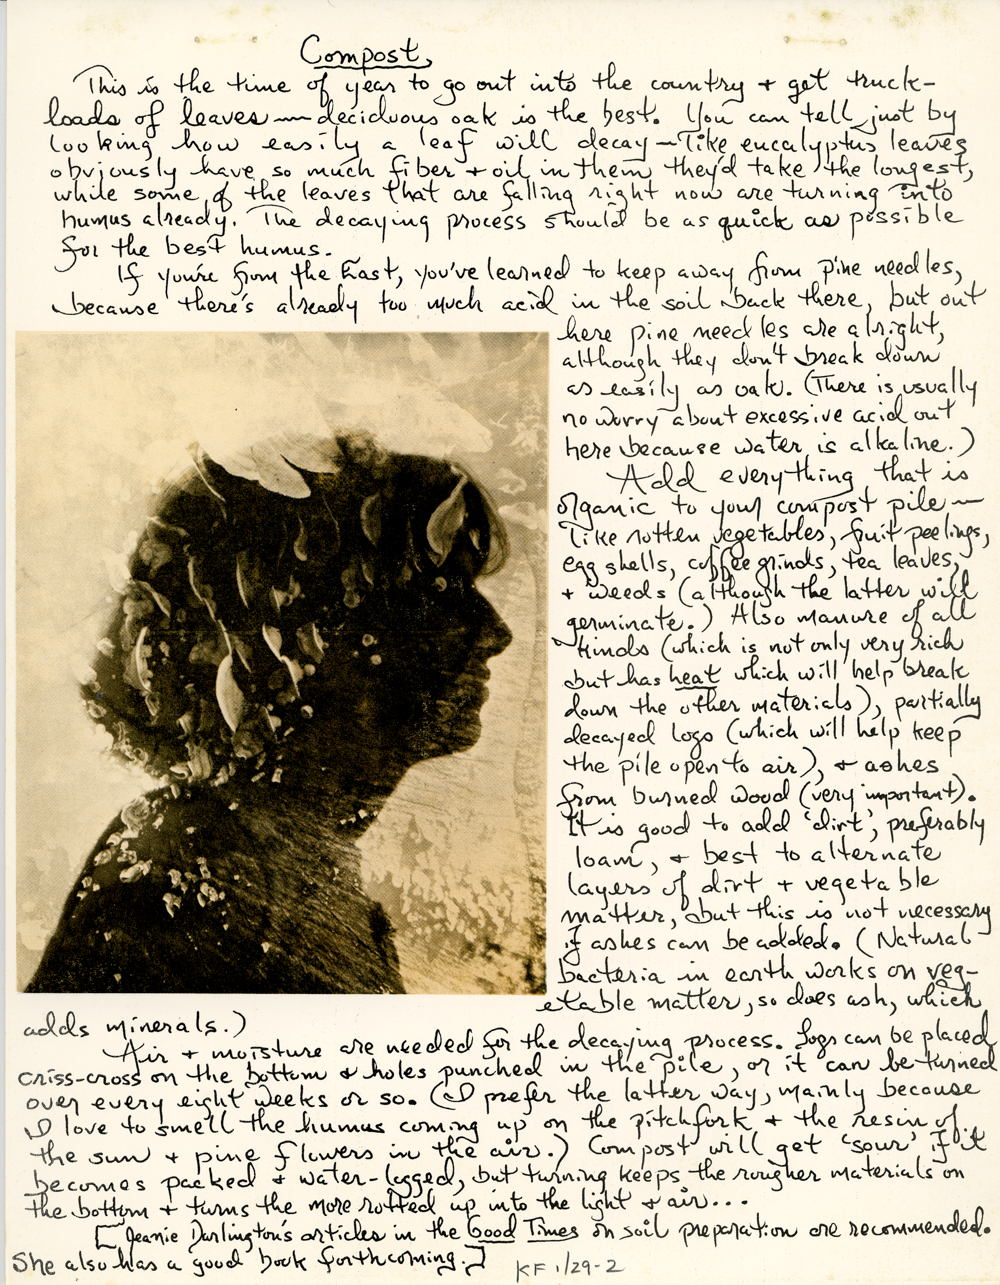 Compost,
This is the time of year to go out into the country + get truck-
loads of leaves — deciduous oak is the best. You can tell just by
looking how easily a leaf will decay — like eucalyptus leaves
obviously have so much fiber + oil in them they'd take the longest,
while some of the leaves that are falling right now are turning into
humus already. The decaying process should be as quick as possible
for the best humus.
If you're from the East, you've learned to keep away from pine needles,
because there's already too much acid in the soil back there, but out
here pine needles are alright,
although they don't break down
as easily as oak. (There is usually
no worry about excessive acid out
here because water is alkaline.)
Add everything that is
organic to your compost pile —
like rotten vegetables, fruit peelings,
egg shells, coffee grinds, tea leaves,
+ weeds (although the latter will
germinate.) Also manure of all
kinds (which is not only very rich
but has heat which will help break
down the other materials), partially
decayed logs (which will help keep
the pile open to air), + ashes
from burned wood (very important).
It is good to add 'dirt', preferably
loam, + best to alternate
layers of dirt + vegetable
matter, but this is not necessary
if ashes can be added. (Natural
bacteria in earth works on veg-
etable matter, so does ash, which
adds minerals.)
Air + moisture are needed for the decaying process. Logs can be placed
criss-cross on the bottom + holes punched in the pile, or it can be turned
over every eight weeks or so. (I prefer the latter way, mainly because
I love to smell the humus coming up on the pitchfork + the resin of
the sun + pine flowers in the air.) Compost will get 'sour' if it
becomes packed + water-logged, but turning keeps the rougher materials on
the bottom + turns the more rotted up into the light + air...
[Jeanie Darlington's articles in the Good Times on soil preparation are recommended.
She also has a good book forthcoming.]
KF 1/29-2